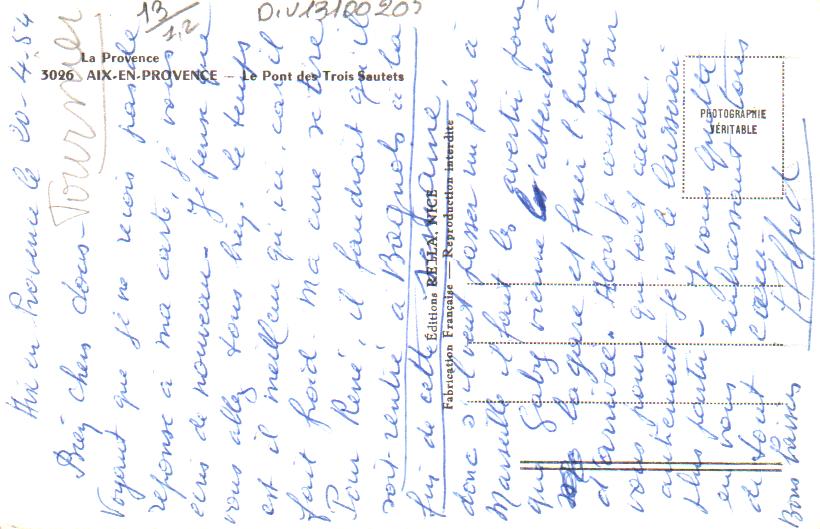 13/1,2
D.V13100205
La Provence
3026 AIX-EN-PROVENCE — Le Pont des Trois Sautets
PHOTOGRAPHIE VÉRITABLE
Éditions RELLA, NICE
Fabrication Française — Reproduction interdite
Fournier
Aix en Provence le 20-4-54
Bien chers tous-
Voyant que je ne reçois pas de
réponse à ma carte, je vous
écris de nouveau - Je pense que
vous allez tous bien. Le temps
est il meilleur qu'ici, car il
fait froid. Ma cure se tire
Pour René, il faudrait qu'il
soit rentré à Bagnols à la
fin de cette semaine,
donc s'il veut passer un peu à
Marseille il faut les avertir pour
que Gaby vienne l'attendre à
la gare et fixer l'heure
d'arrivée. Alors je compte sur
vous pour que tout aille,
autrement je ne le laisserai
plus partir - Je vous quitte
en vous embrassant tous
de tout cœur
Bons baisers
Alfred